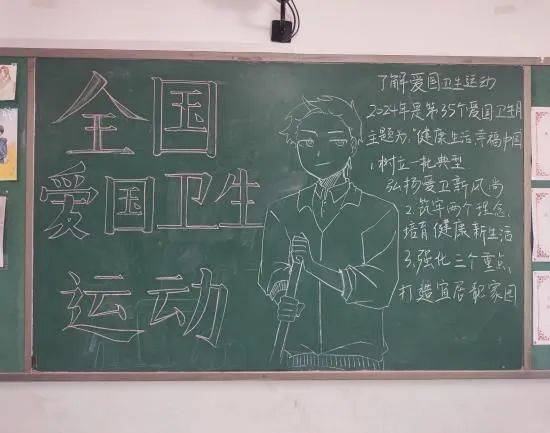 全国
爱国卫生
运动
了解爱国卫生运动
2024年是第35个爱国卫生月
主题为:"健康生活 幸福中国
1,树立一批典型
弘扬爱卫新风尚
2.筑牢两个理念,
培育健康新生活
3,强化三个重点,
打造宜居靓家园